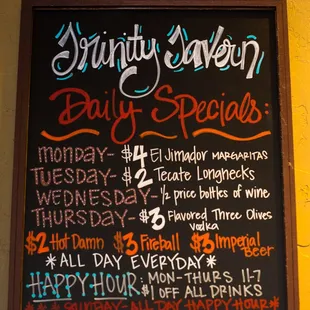 Trinity Tavern
Daily Specials:
MONDAY- $4 El Jimador MARGARITAS
TUESDAY- $2 Tecate Longnecks
WEDNESDAY- 1/2 price bottles of wine
THURSDAY- $3 Flavored Three Olives
vodka
$2 Hot Damn $3 Fireball $3 Imperial
Beer
*ALL DAY EVERYDAY*
HAPPY HOUR: MON-THURS 11-7
$1 OFF ALL DRINKS
SUNDAY- ALL DAY HAPPY HOUR*